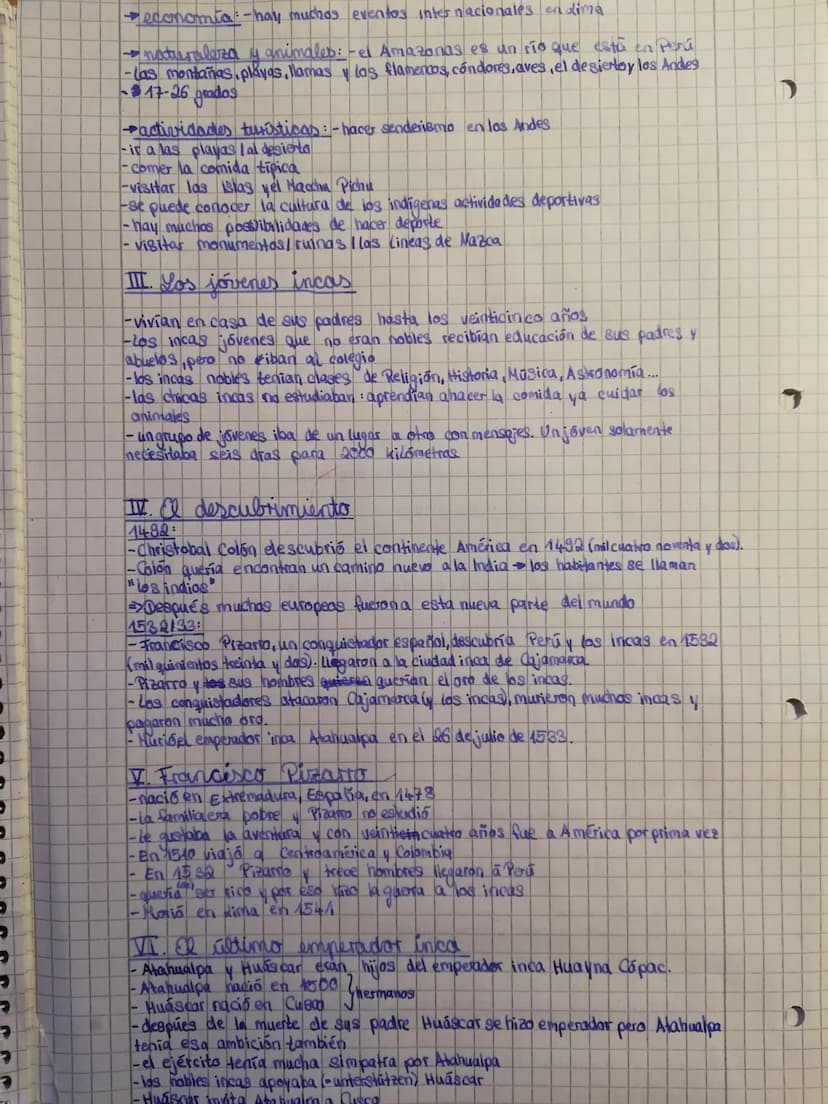 → economía: - hay muchos eventos internacionales en Lima
→ naturaleza y animales: - el Amazonas es un río que está en Perú
- las montañas, playas, llamas y los flamencos, cóndores, aves, el desierto y los Andes
- 17-26 grados
→ actividades turísticas: - hacer senderismo en los Andes
- ir a las playas / al desierto
- comer la comida típica
- visitar las islas y el Machu Pichu
- se puede conocer la cultura de los indígenas actividades deportivas
- hay muchas possibilidades de hacer deporte
- visitar monumentos / ruinas / las Líneas de Nazca
III. Los jóvenes incas
- vivían en casa de sus padres hasta los veinticinco años
- Los incas jóvenes que no eran nobles recibían educación de sus padres y
abuelos, pero no iban al colegio
- los incas nobles tenían clases de Religión, Historia, Música, Astronomía...
- las chicas incas no estudiaban: aprendían a hacer la comida y a cuidar los
animales
- un grupo de jóvenes iba de un lugar a otro con mensajes. Un joven solamente
necesitaba seis días para 2000 kilómetros
IV. El descubrimiento
1492:
- Christobal Colón descubrió el continente América en 1492 (mil cuatro noventa y dos).
- Colón quería encontrar un camino nuevo a la India → los habitantes se llaman
"los indios"
⇒ Después muchos europeos fueron a esta nueva parte del mundo
1532/33:
- Francisco Pizarro, un conquistador español, descubría Perú y los incas en 1532
(mil quinientos treinta y dos). Llegaron a la ciudad inca de Cajamarca
- Pizarro y sus hombres querían el oro de los incas.
- Los conquistadores atacaron Cajamarca (y los incas), murieron muchos incas y
pagaron mucho oro.
- Murió el emperador inca Atahualpa en el 26 de julio de 1533.
V. Francisco Pizarro
- nació en Extremadura, España, en 1478
- La familia era pobre y Pizarro no estudió
- Le gustaba la aventura y con veinticuatro años fue a América por prima vez
- En 1510 viajó a Centroamérica y Colombia
- En 1532 Pizarro y trece hombres llegaron a Perú
- quería ser rico y por eso hizo la guerra a los incas
- Morió en Lima en 1541
VI. El último emperador inca
- Atahualpa y Huáscar eran hijos del emperador inca Huayna Cápac.
- Atahualpa nació en 1500
- Huáscar nació en Cusco } hermanos
- después de la muerte de sus padre Huáscar se hizo emperador pero Atahualpa
tenía esa ambición también
- el ejército tenía mucha simpatía por Atahualpa
- los nobles incas apoyaba (= unterstützen) Huáscar
- Huáscar invita Atahualpa a Cusco